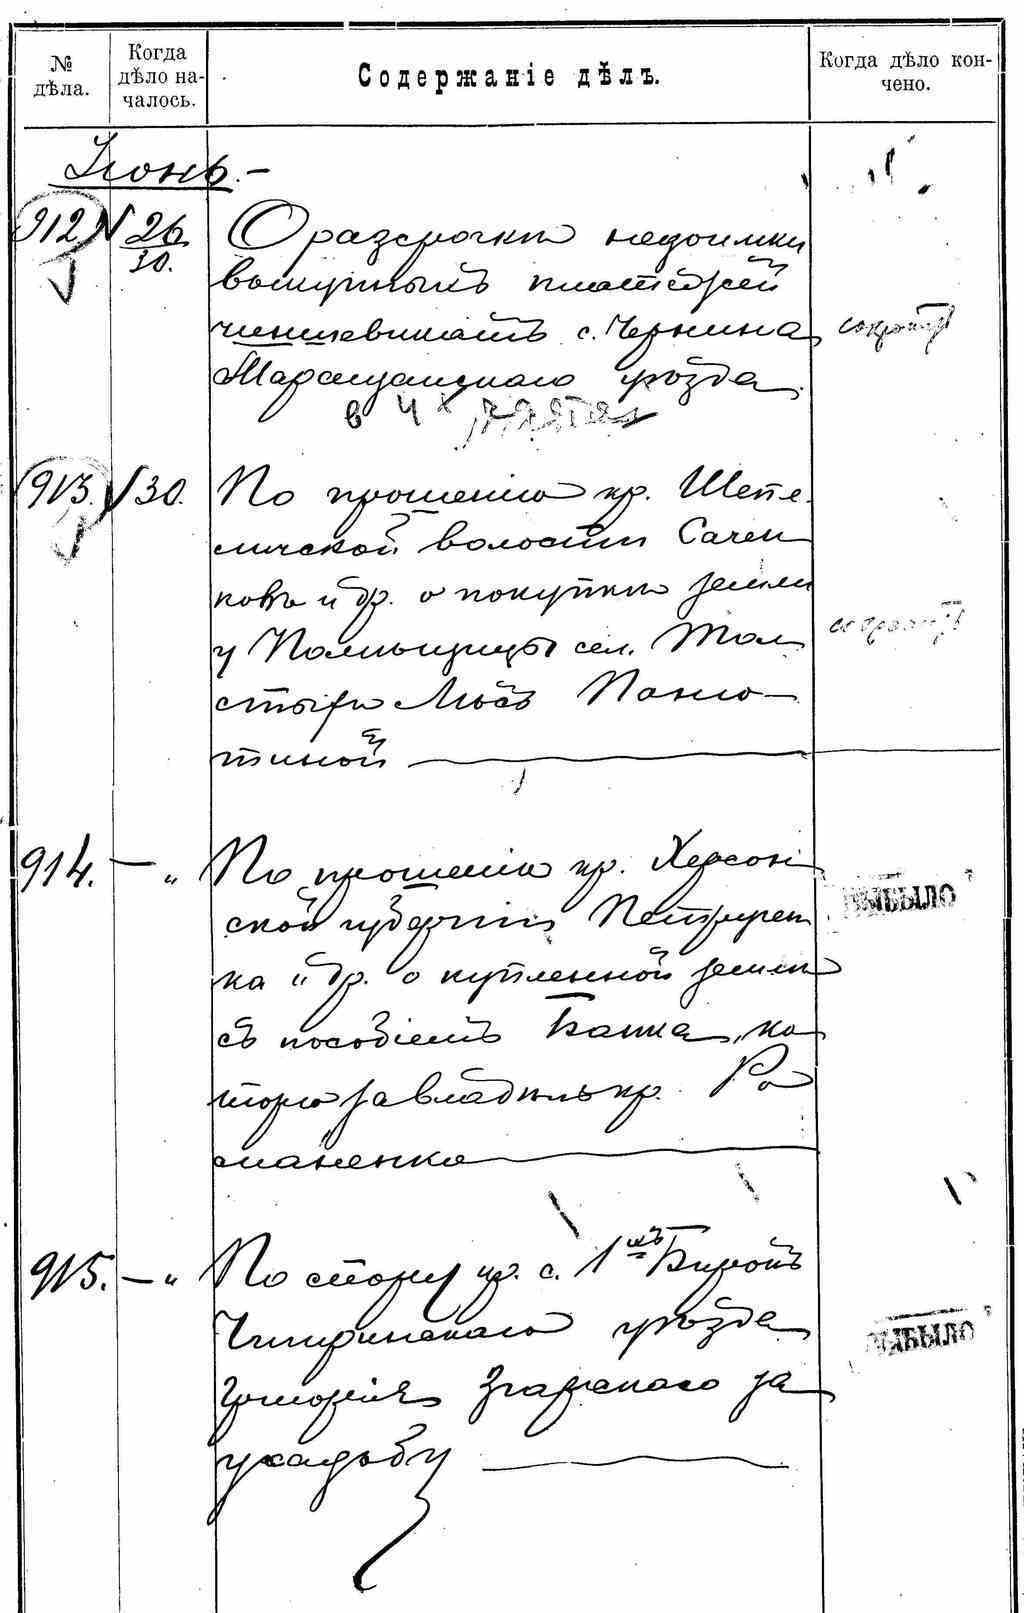 № дѣла.
Когда дѣло на-
чалось.
Содержаніе дѣлъ.
Когда дѣло кон-
чено.
Іюнь.-
912 26
30.
О разсрочкѣ недоимки
выкупныхъ платежей
чиншевикамъ с. Чернина
Таращанскаго уѣзда
в 4 х
913. 30.
По прошенію кр. Шепе-
личской волости Сачен
ковъ и др. о покупкѣ земли
у Помѣщицы сел. Тол
стый Лѣсъ Паню-
тиной
914. — "
По прошенію кр. Херсон
ской губерніи Петрурен
ка и др. о купленной землѣ
съ пособіемъ Банка, ко
торою завладѣлъ кр. Ро
маненко
ВЫБЫЛО
915. — "
По спору кр. с. 1
Чигиринскаго уѣзда
Григорія Згарскаго за
усадьбу
ВЫБЫЛО